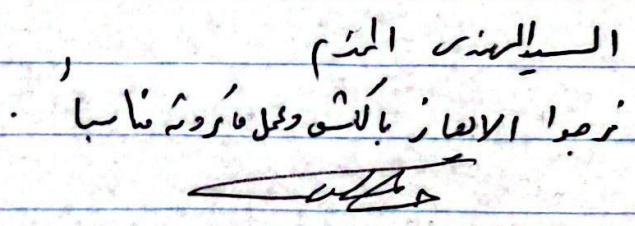 السيد المهندس المحترم
نرجوا الايعاز بالكشف وعمل ماترونه مناسباً .